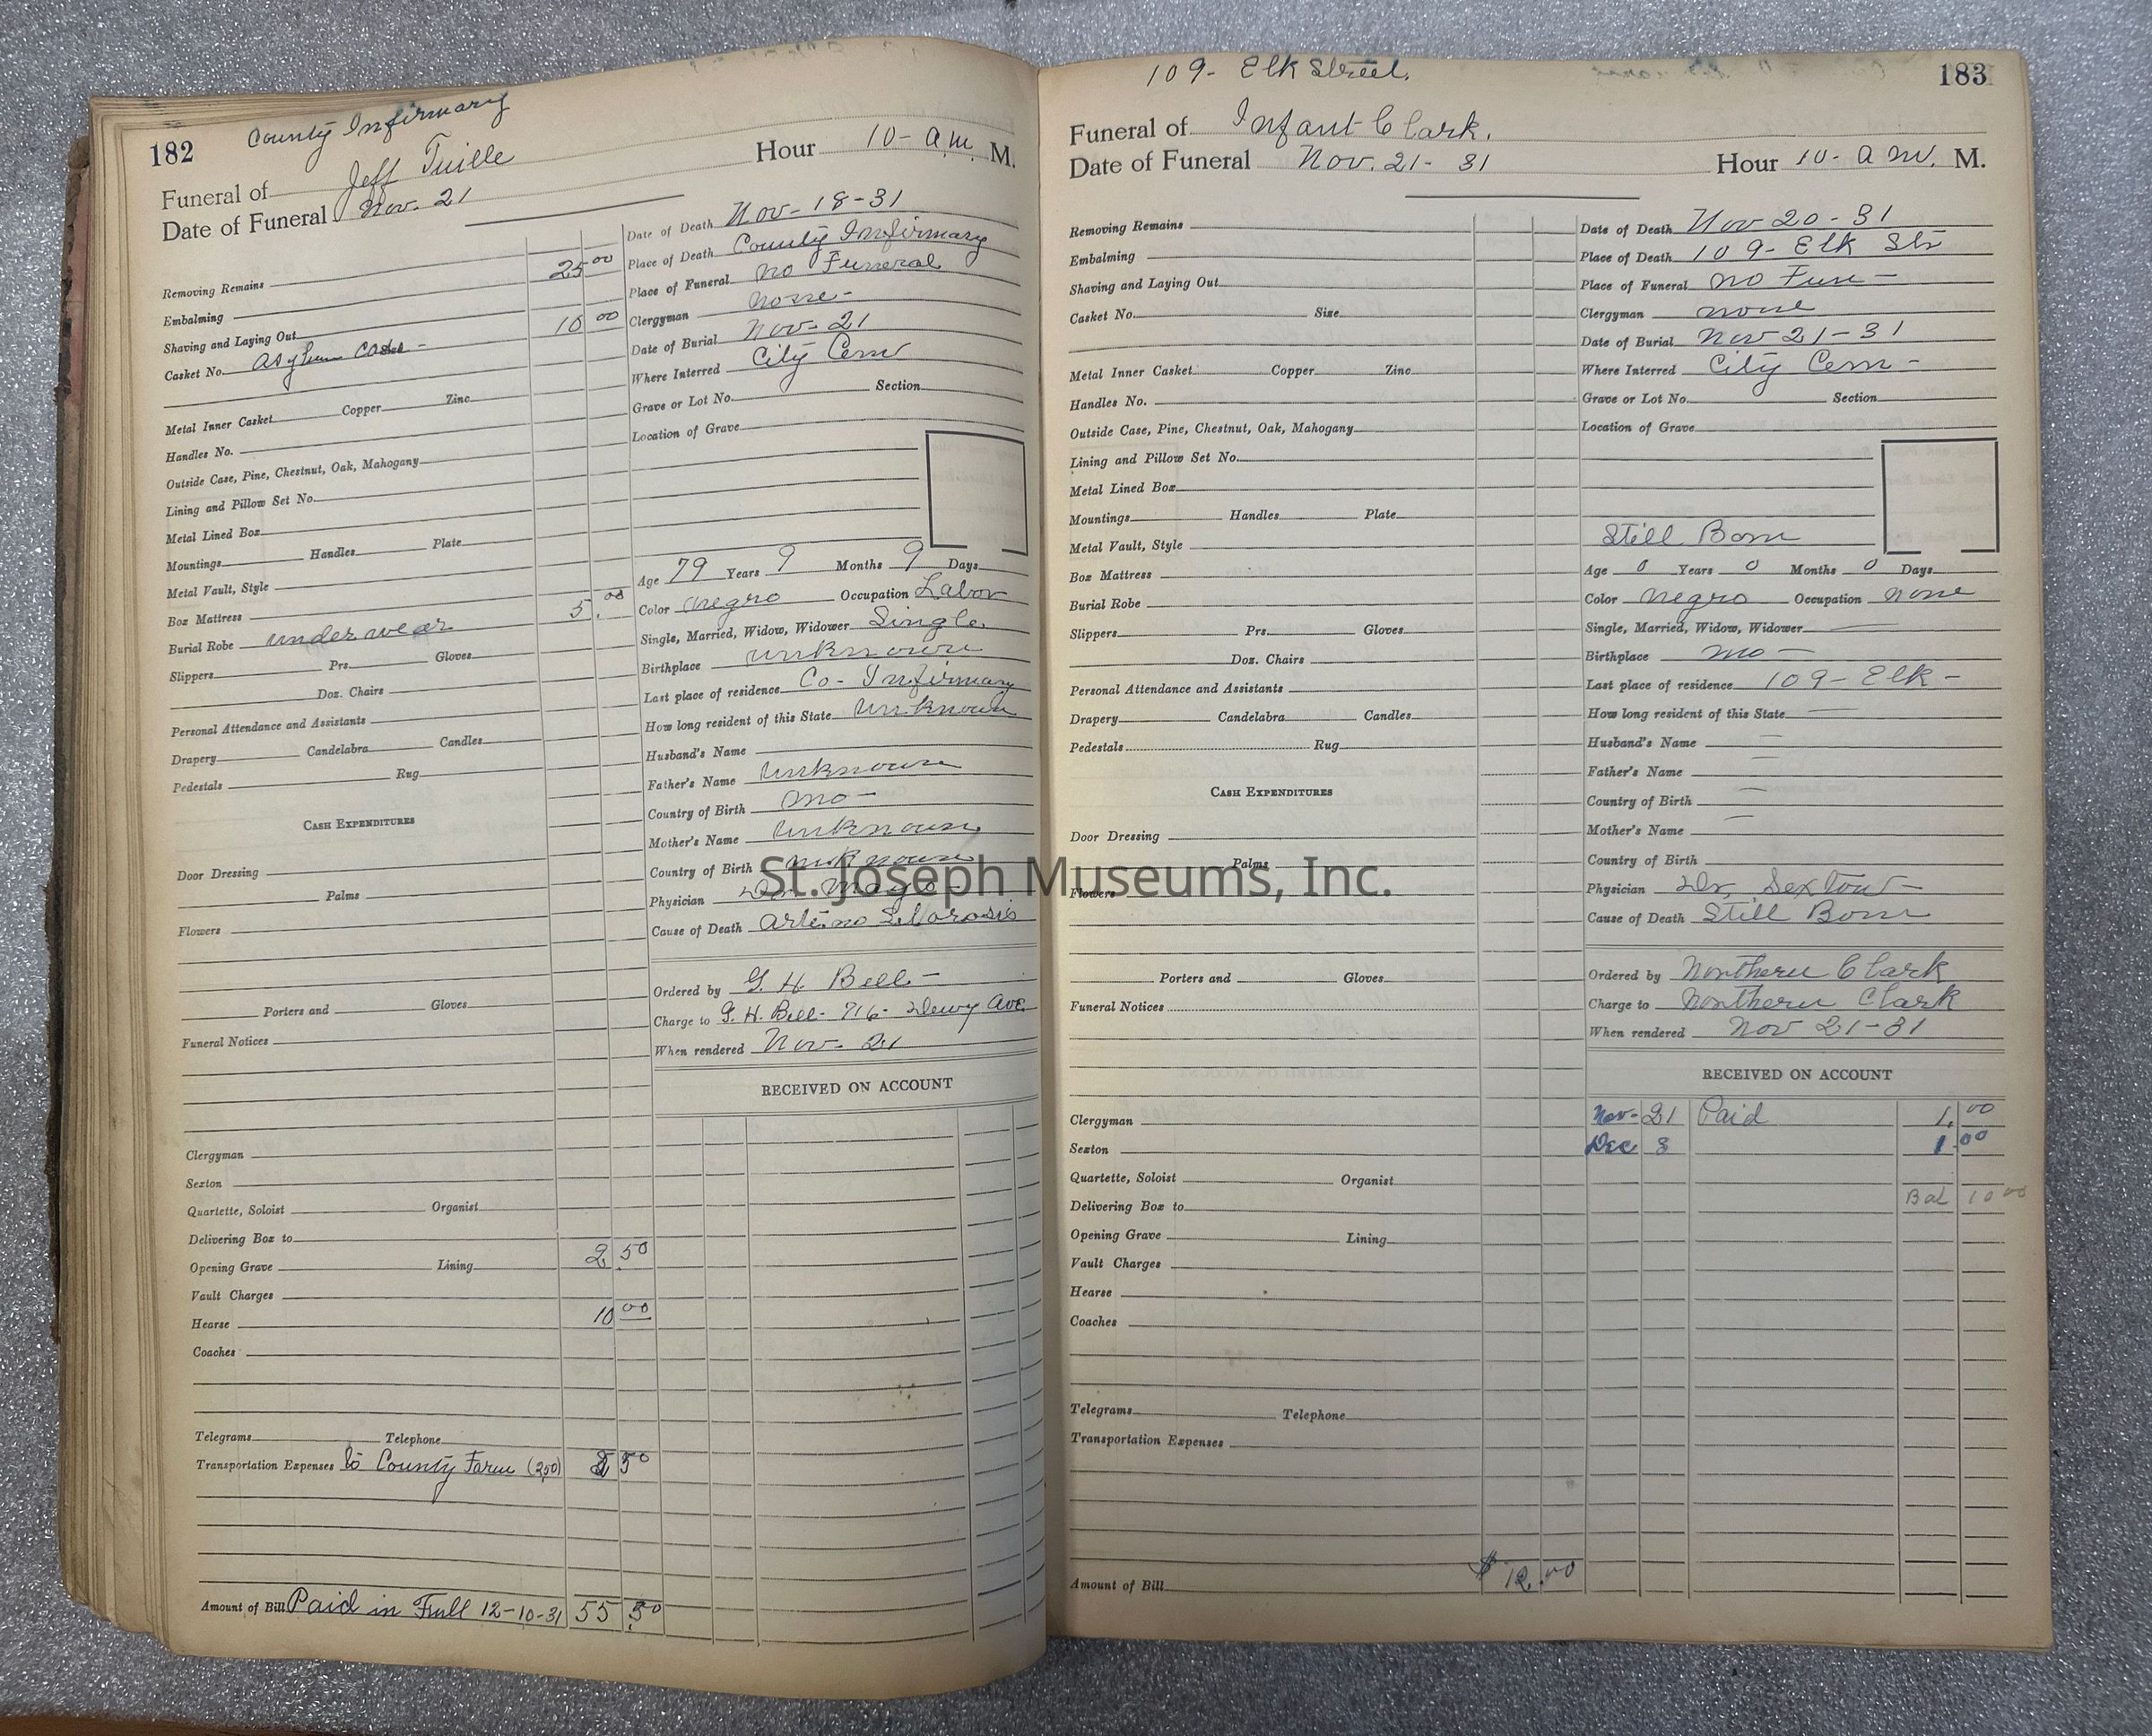 182
County Infirmary
Funeral of Jeff Tuille
Hour 10- a.m. M.
Date of Funeral Nov. 21
Removing Remains 25 00
Embalming
Shaving and Laying Out 10 00
Casket No. Asylum
Metal Inner Casket Copper Zinc
Handles No.
Outside Case, Pine, Chestnut, Oak, Mahogany
Lining and Pillow Set No.
Metal Lined Box
Mountings Handles Plate
Metal Vault, Style
Box Mattress
Burial Robe underwear 5.00
Slippers Prs. Gloves
Doz. Chairs
Personal Attendance and Assistants
Drapery Candelabra Candles
Pedestals Rug
CASH EXPENDITURES
Door Dressing
Palms
Flowers
Porters and Gloves
Funeral Notices
Clergyman
Sexton
Quartette, Soloist Organist
Delivering Box to
Opening Grave Lining 2.50
Vault Charges
Hearse 10 00
Coaches
Telegrams Telephone
Transportation Expenses to County Farm (2.50) 50
Amount of Bill Paid in Full 12-10-31 55 50
Date of Death Nov-18-31
Place of Death County Infirmary
Place of Funeral no Funeral
Clergyman none-
Date of Burial Nov- 21
Where Interred City Cem
Grave or Lot No. Section
Location of Grave
Age 79 Years 9 Months 9 Days
Color negro Occupation Labor
Single, Married, Widow, Widower Single
Birthplace unknown
Last place of residence Co- Infirmary
How long resident of this State unknown
Husband's Name
Father's Name unknown
Country of Birth Mo-
Mother's Name unknown
Country of Birth unknown
Physician Dr.
Cause of Death
Ordered by G. H. Bell-
Charge to G. H. Bell- 716- Dewy Ave
When rendered Nov- 21
RECEIVED ON ACCOUNT
109- Elk Street.
183
Funeral of Infant Clark.
Date of Funeral Nov. 21- 31 Hour 10- a m. M.
Removing Remains
Embalming
Shaving and Laying Out
Casket No. Size
Metal Inner Casket Copper Zinc
Handles No.
Outside Case, Pine, Chestnut, Oak, Mahogany
Lining and Pillow Set No.
Metal Lined Box
Mountings Handles Plate
Metal Vault, Style
Box Mattress
Burial Robe
Slippers Prs. Gloves
Doz. Chairs
Personal Attendance and Assistants
Drapery Candelabra Candles
Pedestals Rug
CASH EXPENDITURES
Door Dressing
Palms
Flowers
Porters and Gloves
Funeral Notices
Clergyman
Sexton
Quartette, Soloist Organist
Delivering Box to
Opening Grave Lining
Vault Charges
Hearse
Coaches
Telegrams Telephone
Transportation Expenses
Amount of Bill $ 12.00
Date of Death Nov 20-31
Place of Death 109- Elk Str
Place of Funeral no Fun-
Clergyman none
Date of Burial Nov 21-31
Where Interred City Cem-
Grave or Lot No. Section
Location of Grave
Still Born
Age 0 Years 0 Months 0 Days
Color negro Occupation none
Single, Married, Widow, Widower
Birthplace Mo-
Last place of residence 109- Elk-
How long resident of this State
Husband's Name
Father's Name
Country of Birth
Mother's Name
Country of Birth
Physician Dr. Sexton-
Cause of Death Still Born
Ordered by Northern Clark
Charge to Northern Clark
When rendered Nov 21-31
RECEIVED ON ACCOUNT
Nov- 21 Paid 1.00
Dec 8 1.00
Bal 10 00
St. Joseph Museums, Inc.